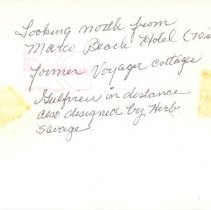 Looking north from
Marco Beach Hotel (70's
former Voyager cottages
Gulfview in distance
also designed by Herb
Savage